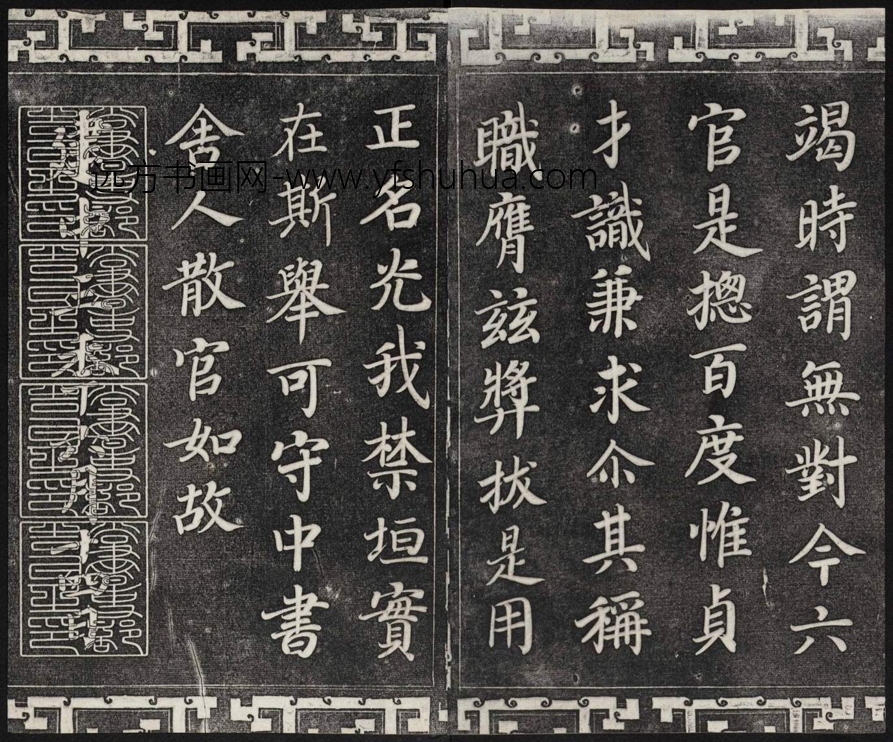 竭時謂無對今六
官是摠百度惟貞
才識兼求尒其稱
職膺茲奬拔是用
正名光我禁垣實
在斯舉可守中書
舍人散官如故
远方书画网-www.yfshuhua.com